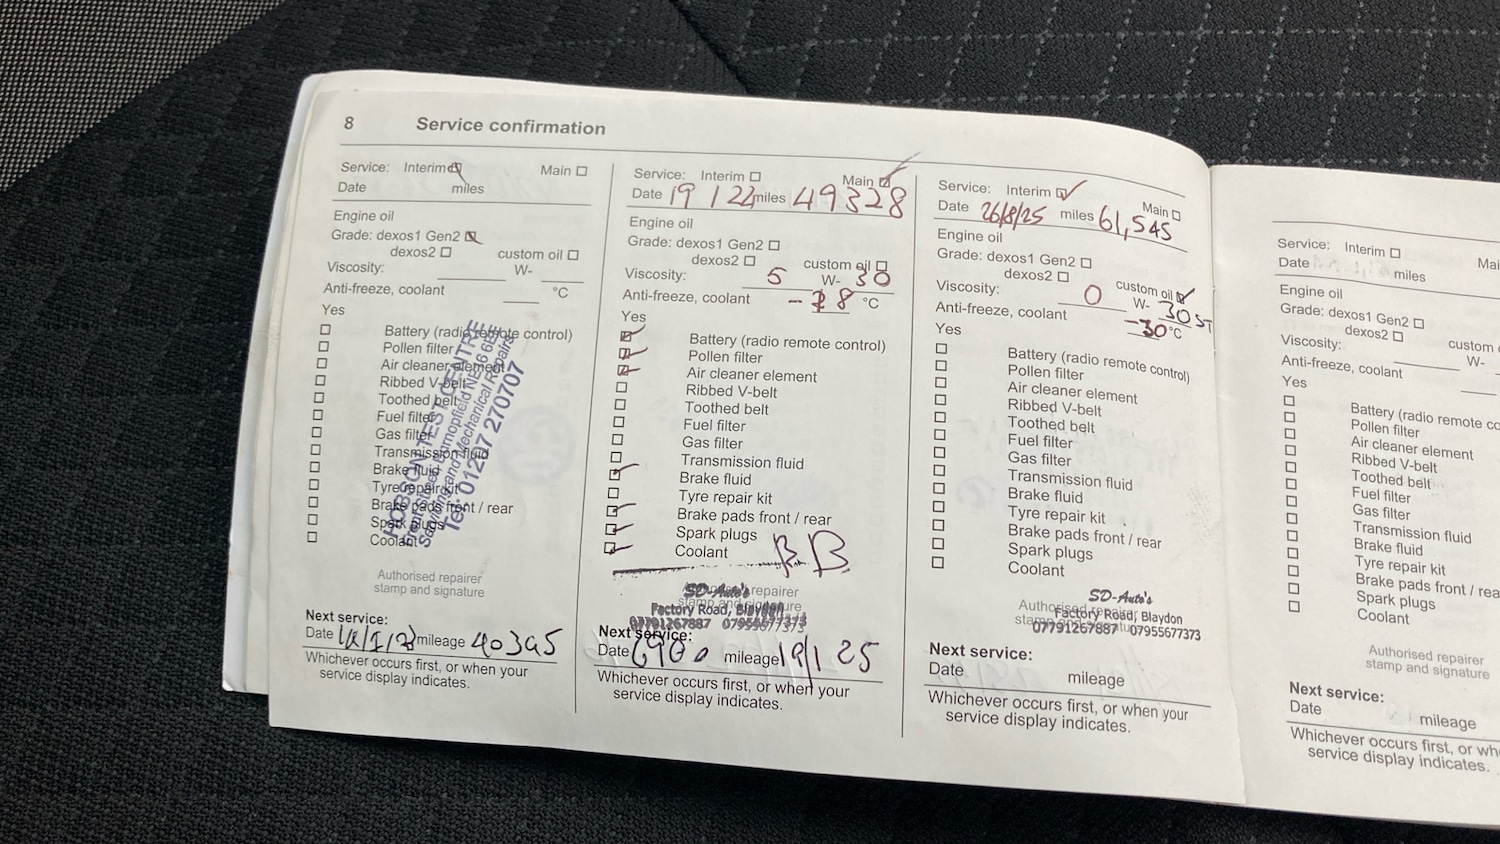 8 Service confirmation
Service: Interim Main
Date miles
Engine oil
Grade: dexos1 Gen2
dexos2 custom oil
Viscosity: W-
Anti-freeze, coolant °C
Yes
Battery (radio remote control)
Pollen filter
Air cleaner element
Ribbed V-belt
Toothed belt
Fuel filter
Gas filter
Transmission fluid
Brake fluid
Tyre repair kit
Brake pads front / rear
Spark plugs
Coolant
HOBSON TEST CENTRE
Servicing and Mechanical Repairs
Tel: 01207 270707
Authorised repairer
stamp and signature
Next service:
Date mileage 40395
Whichever occurs first, or when your
service display indicates.
Service: Interim Main
Date 19 1 22 miles 49328
Engine oil
Grade: dexos1 Gen2
dexos2 custom oil
Viscosity: 5 W- 30
Anti-freeze, coolant 8 °C
Yes
Battery (radio remote control)
Pollen filter
Air cleaner element
Ribbed V-belt
Toothed belt
Fuel filter
Gas filter
Transmission fluid
Brake fluid
Tyre repair kit
Brake pads front / rear
Spark plugs
Coolant
Authorised repairer
stamp and signature
SD-Auto's
Factory Road, Blaydon
07791267887 07955677373
Next service:
Date mileage 19/1 25
Whichever occurs first, or when your
service display indicates.
Service: Interim Main
Date 26/8/25 miles 61,545
Engine oil
Grade: dexos1 Gen2
dexos2 custom oil
Viscosity: 0 W- 30 ST
Anti-freeze, coolant -30 °C
Yes
Battery (radio remote control)
Pollen filter
Air cleaner element
Ribbed V-belt
Toothed belt
Fuel filter
Gas filter
Transmission fluid
Brake fluid
Tyre repair kit
Brake pads front / rear
Spark plugs
Coolant
Authorised repairer
stamp and signature
SD-Auto's
Factory Road, Blaydon
07791267887 07955677373
Next service:
Date mileage
Whichever occurs first, or when your
service display indicates.
Service: Interim
Date miles
Engine oil
Grade: dexos1 Gen2
dexos2 custom
Viscosity: W-
Anti-freeze, coolant
Yes
Battery (radio remote
Pollen filter
Air cleaner element
Ribbed V-belt
Toothed belt
Fuel filter
Gas filter
Transmission fluid
Brake fluid
Tyre repair kit
Brake pads front /
Spark plugs
Coolant
Authorised repairer
stamp and signature
Next service:
Date mileage
Whichever occurs first, or
service display indicates.